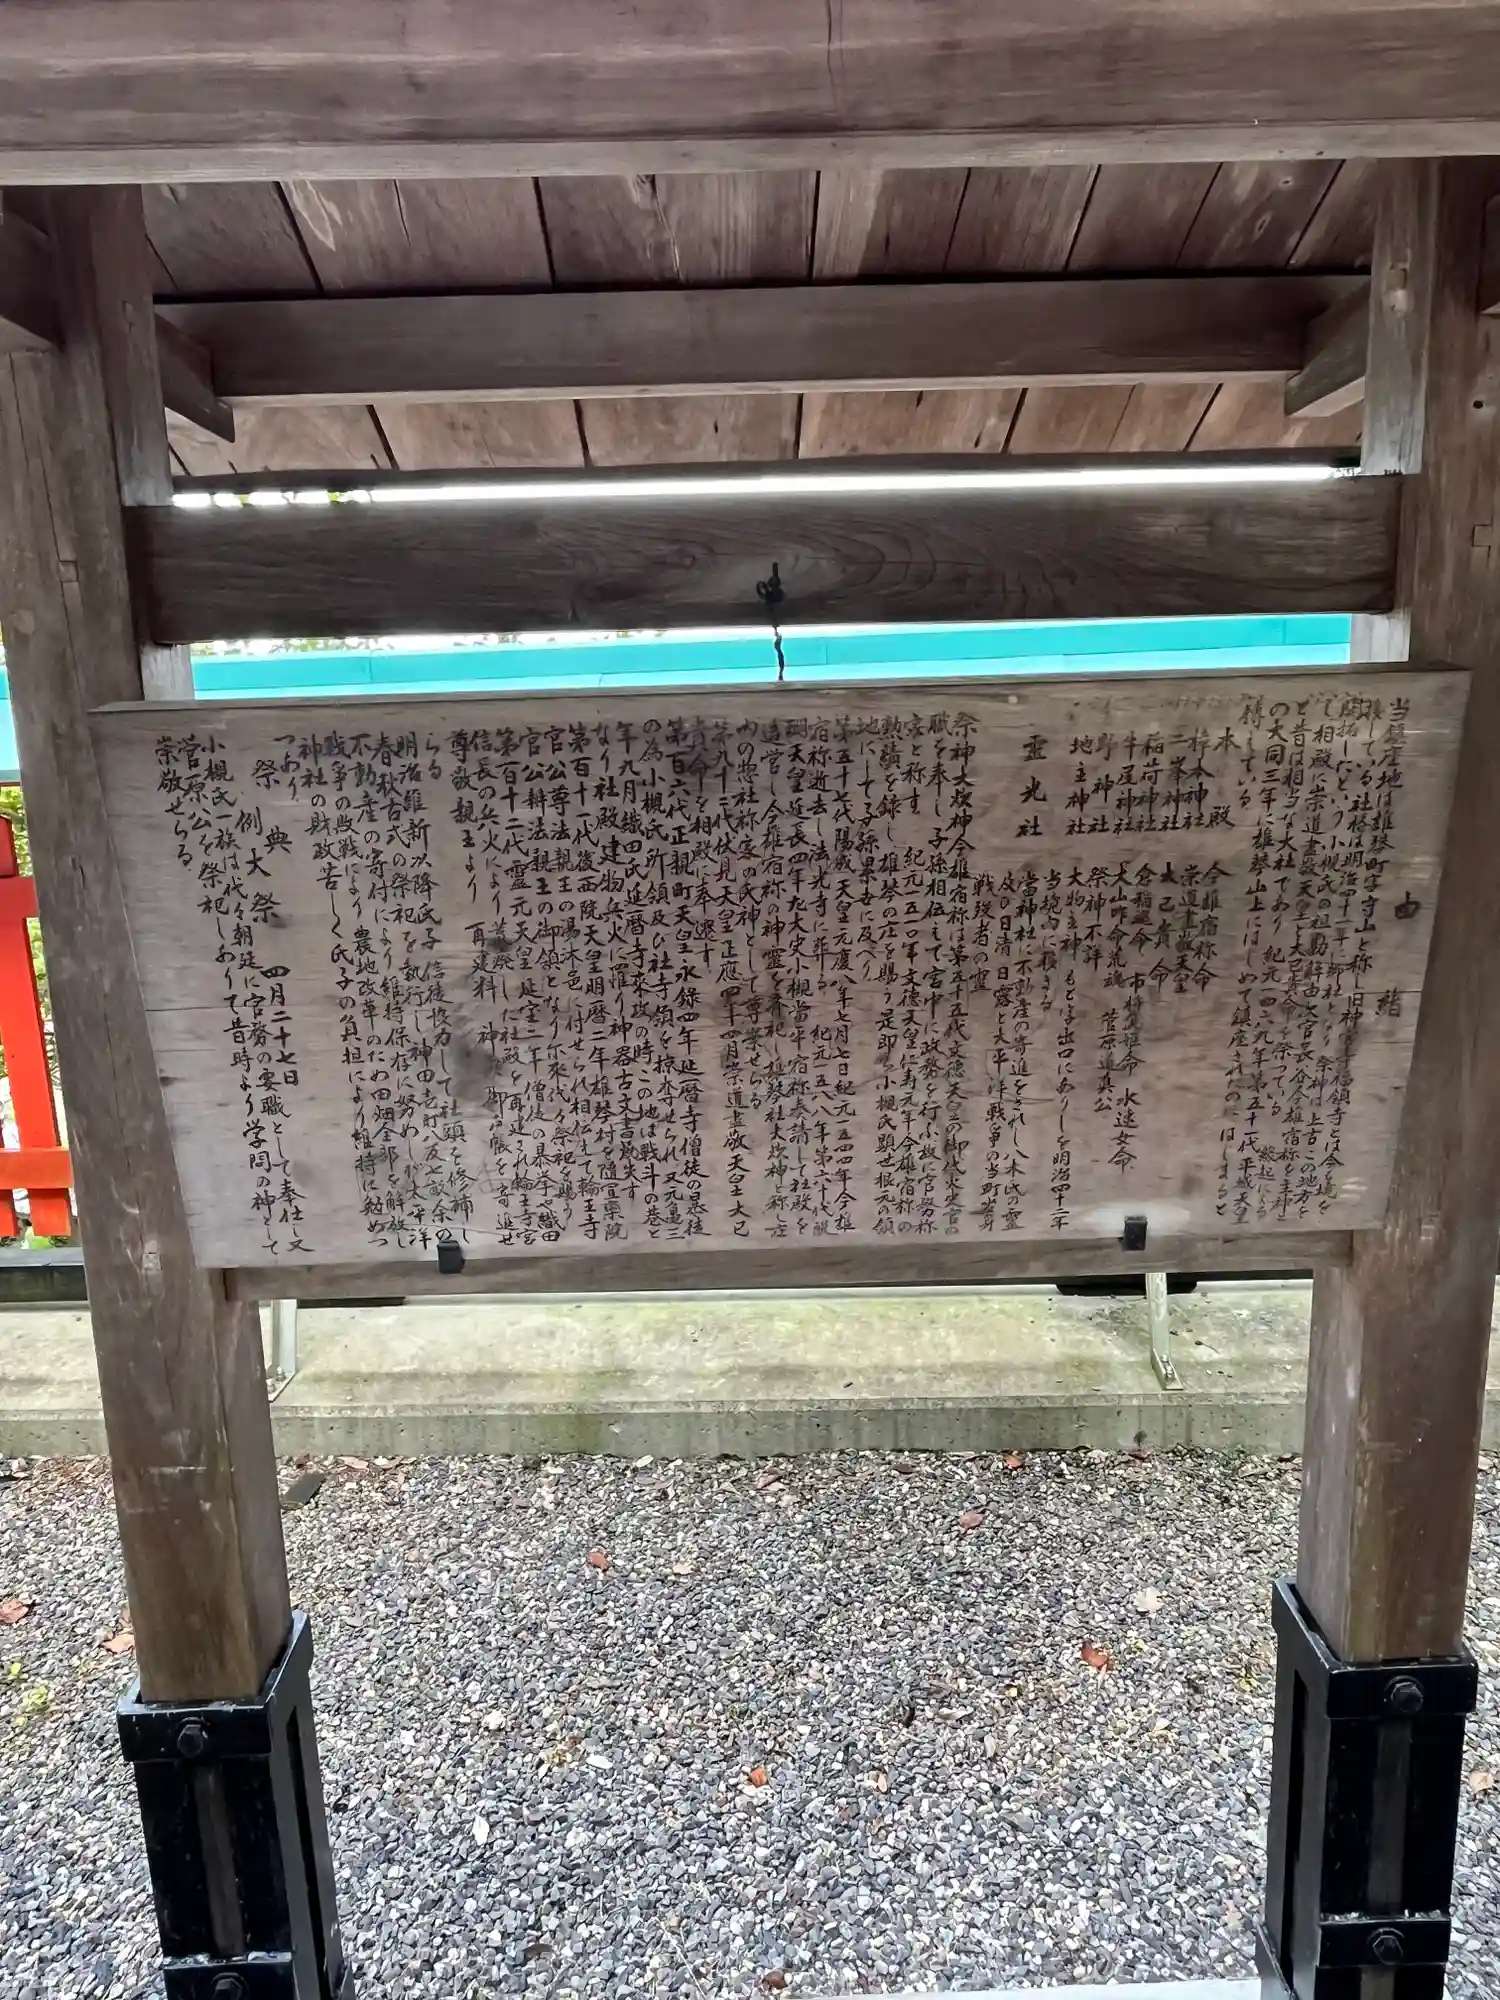 由緒
当鎮座地は雄琴町字守山と称し旧神宮寺福領寺とは今を境を
接している 社格は明治四十一年に郷社となり 祭神は上古この地方を
開拓したという小槻氏の祖 勘解由次官長谷今雄宿称を主神と
して相殿に崇道盡敬天皇と大己貴命を祭っている
と 昔は相当な大社であり 紀元一四六九年第五十一代平城天皇
の大同三年に雄琴山上にはじめて鎮座されたのにはじまると
傳えている
本殿 今雄宿称命
崇道盡敬天皇
大己貴命
梓本神社
三峯神社
稲荷神社 倉稲魂命 市杵嶋姫命 水速女命
牛尾神社 大山咋命荒魂 菅原道真公
野神社 祭神不詳
地主神社 大物主神 もと浮出口にありしを明治四十二年
当境内に移さる
霊光社 當神社に不動産の寄進をされし八木氏の霊
及び日清 日露と大平洋戦争の当町出身
戦歿者の霊
祭神大炊神今雄宿称は第五十五代文徳天皇の御代火史官の
職を奉し 子孫相伝えて宮中に政務を行う故に官務称
家と称す 紀元一五一〇年文徳天皇仁寿元年今雄宿称の
勲績を録し 雄琴の庄を賜う是即ち小槻氏顕世根元の領
地にして子孫累世に及べり
第五十七代陽成天皇元慶八年七月七日紀元一五四四年今雄
宿称逝去し法光寺に葬る 紀元一五八八年第六十代醍
醐天皇延長四年左大史小槻當平宿称奏請して社殿を
造営し今雄宿称の神霊を斉祀し雄琴社大炊神と称し庄
内の惣社称家の氏神として尊崇せらる
第九十二代伏見天皇正應四年四月崇道盡敬天皇大己
貴命を相殿に奉遷す
第百六代正親町天皇永録四年延暦寺僧徒の暴徒
の為小槻氏所領及び社寺領を掠奪せられ 又元亀三
年九月織田氏延暦寺来攻の時この地は戦斗の巷と
なり社殿建物兵火に罹り神器古文書焼失す
第百十一代後西院天皇明暦二年雄琴村を随冝樂院
宮公尊法親王の湯沐邑に付せられ相伝えて輪王寺
宮公辨法親王の御領となり尓来代々祭祀を賜う
第百十二代霊元天皇延宝二年僧徒の暴挙や織田
信長の兵火により荒廃した社殿を再建され輪王寺宮
尊敬親王より 再建料 神 御戸帳を寄進せ
らる
明治維新以降氏子 信徒協力して社頭を修補し
春秋古式の祭祀を執行し神田壱町八反七畝余の
不動産の寄付により維持保存に努めしが太平洋
戦争の敗戦により農地改革のため田畑全部を解放し
神社の財政苦しく氏子の負担により維持に勉めつ
つあり
祭典
例大祭 四月二十七日
小槻氏一族は代々朝廷に官務の要職として奉仕し又
菅原公を祭祀しありて昔時より学問の神として
崇敬せらる